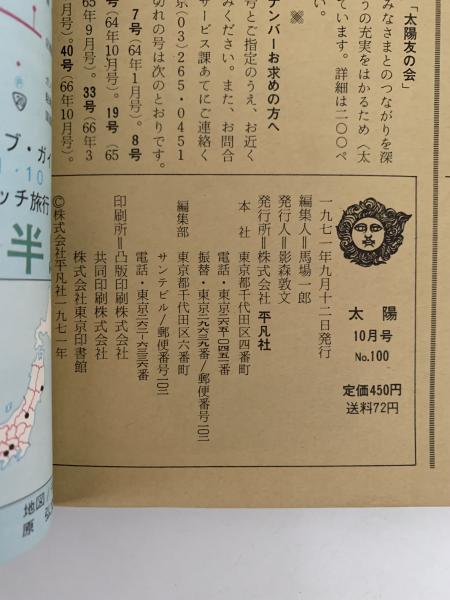 「太陽友の会」
みなさまとのつながりを深
うの充実をはかるため〈太
ています。詳細は二〇〇ペ
い。
ナンバーお求めの方へ
号とご指定のうえ、お近く
みください。また、お問合
サービス課あてにご連絡く
京(03)265・0451
切れの号は次のとおりです。
7号(64年1月号)。8号
号(64年10月号)。19号(65
65年9月号)。33号(66年3
。40号(66年10月号)。
太陽
10月号
No.100
定価450円
送料72円
一九七一年九月十二日発行
編集人＝馬場一郎
発行人＝影森敦文
発行所＝株式会社 平凡社
本社 東京都千代田区四番町
電話・東京二六五-〇四五一番
振替・東京二九六三九番/郵便番号一〇二
編集部 東京都千代田区六番町
サンテビル/郵便番号一〇二
電話・東京二六二-六三三六番
印刷所＝凸版印刷株式会社
共同印刷株式会社
株式会社東京印書館
©株式会社平凡社一九七一年
ブ・ガイ
1・10
ッチ旅行
半
地図
原